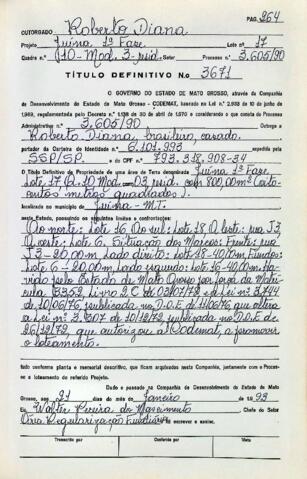 PÁG. 264
OUTORGADO Roberto Diana
Projeto Juína 1ª Fase Lote nº 17
Quadra nº (10-Mod. 3-resid. Processo nº 3.605/90
TÍTULO DEFINITIVO N.o 3671
O GOVERNO DO ESTADO DE MATO GROSSO, através da Companhia
de Desenvolvimento do Estado de Mato Grosso - CODEMAT, baseado na Lei n.º 2.938 de 10 de junho de
1969, regulamentada pelo Decreto n.º 1.138 de 30 de abril de 1970 e considerando o que consta do Processo
Administrativo n.º 3.605/90 Outorga a
Roberto Diana, brasileiro, casado.
portador da Carteira de Identidade n.º 6.101.993 expedida pela
SSP/SP. e do CPF nº 793.318.908-34
O Título Definitivo de Propriedade de uma área de Terra denominada Juína 1ª Fase
Lote 17 Q. 10 Mod. 03 resid. com 800,00m² (oito-
centos metros quadrados).
localizada no município de Juína - MT.
neste Estado, possuindo os seguintes limites e confrontações:
Ao norte: Lote 16 Ao sul: Lote 18 A Leste: rua J3
A oeste: Lote 6. Situação dos Marcos: Frente: rua
J3-20,00m Lado direito: Lote 18-40,00m Fundos:
Lote 6-20,00m Lado esquerdo: Lote 16-40,00m. Ha-
vido pelo Estado de Mato Grosso por força da Matrí-
cula 3352, Livro 2 C de 03/07/72 e Lei nº 3.744
de 10/06/76, publicada no D.O.E de 11/06/76 que altera
a Lei nº 3.307 de 10/12/72 publicada no D.O.E. de
26/12/72, que autorizou a Codemat, a promover
o loteamento.
tudo conforme planta e memorial descritivo, que ficam arquivados nesta Companhia, juntamente com o Proces-
so e loteamento do referido Projeto.
Dado e passado na Companhia de Desenvolvimento do Estado de Mato
Grosso, aos 21 dias do mês de Janeiro de 1993
Eu Walter Pereira do Nascimento Chefe do Setor
Regularização Fundiária o escrevi e assino.
Transcrito por
Conferido por
Visto